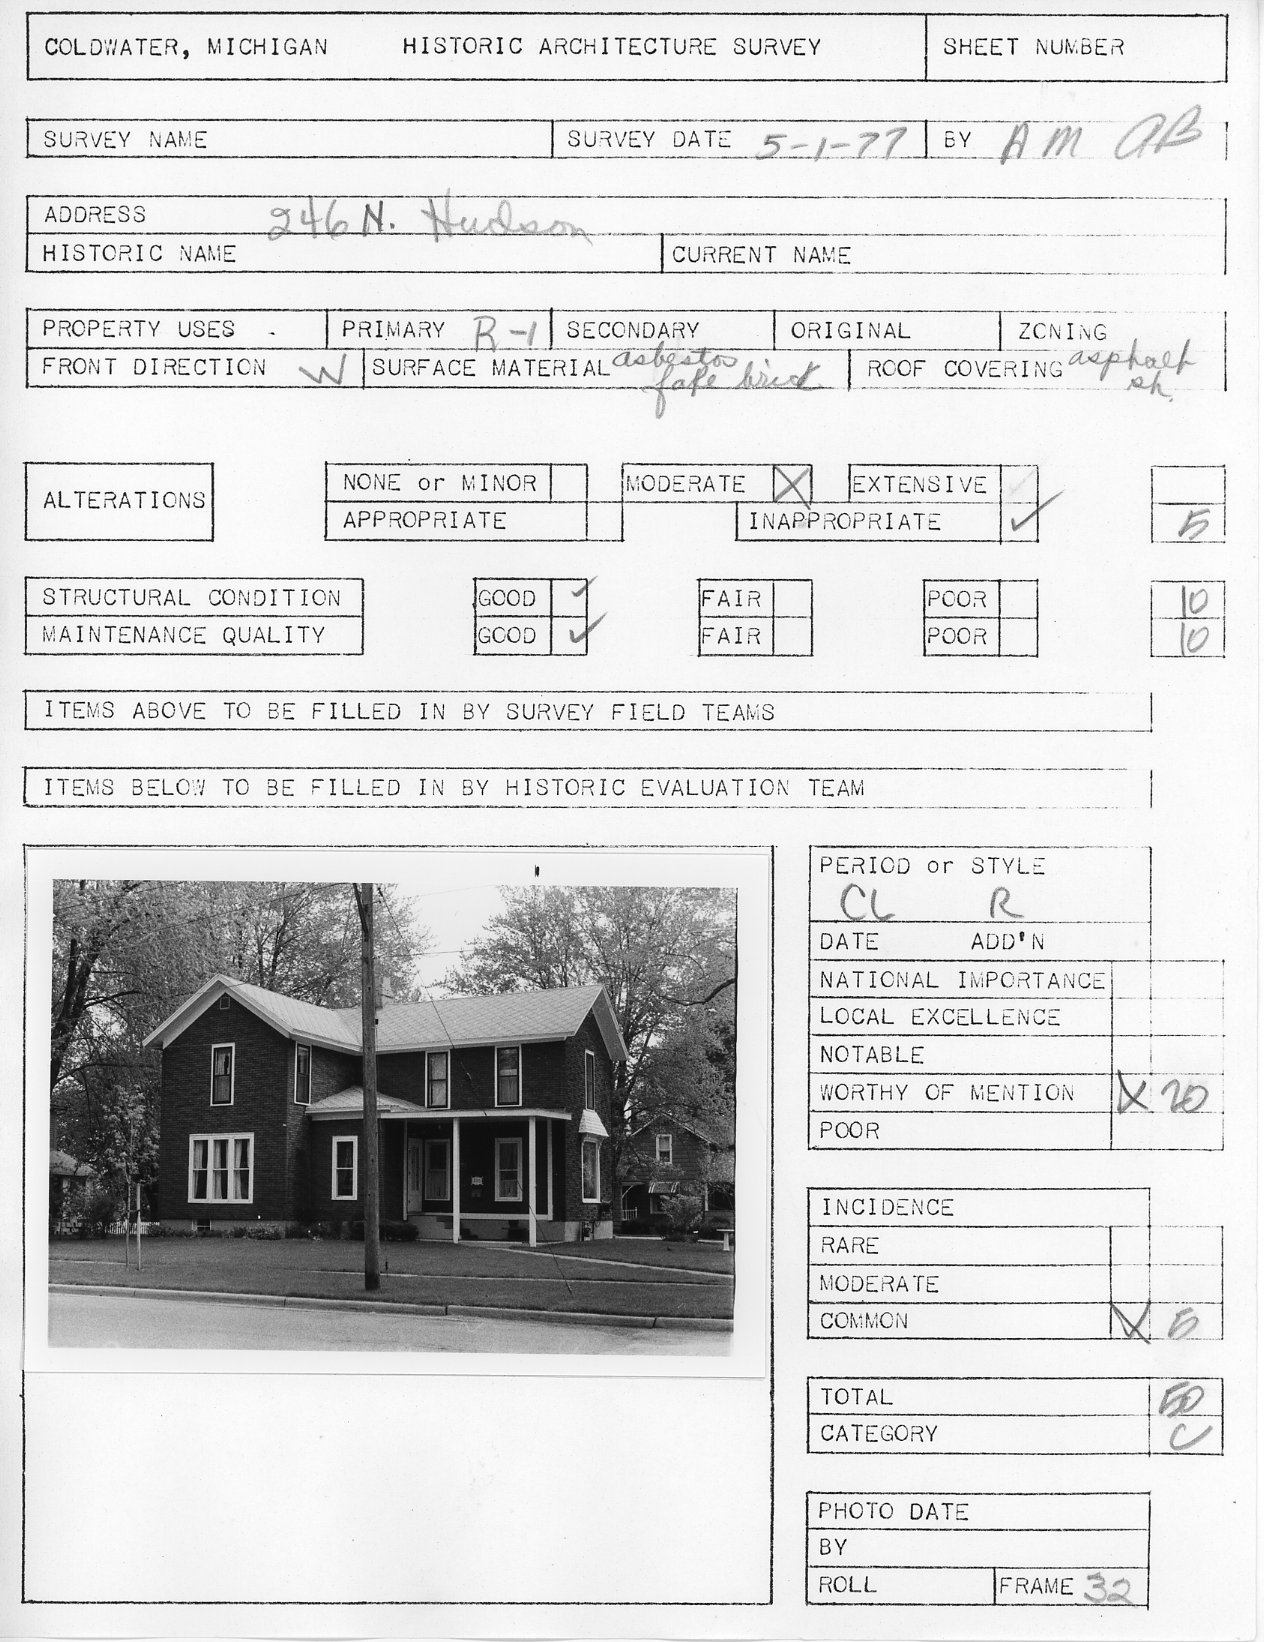 COLDWATER, MICHIGAN HISTORIC ARCHITECTURE SURVEY SHEET NUMBER
SURVEY NAME SURVEY DATE 5-1-77 BY AM AB
ADDRESS 246 N. Hudson
HISTORIC NAME CURRENT NAME
PROPERTY USES PRIMARY R-1 SECONDARY ORIGINAL ZONING
FRONT DIRECTION W SURFACE MATERIAL asbestos fake brick ROOF COVERING asphalt sh.
ALTERATIONS NONE or MINOR MODERATE X EXTENSIVE
APPROPRIATE INAPPROPRIATE ✓ 5
STRUCTURAL CONDITION GOOD ✓ FAIR POOR 10
MAINTENANCE QUALITY GOOD ✓ FAIR POOR 10
ITEMS ABOVE TO BE FILLED IN BY SURVEY FIELD TEAMS
ITEMS BELOW TO BE FILLED IN BY HISTORIC EVALUATION TEAM
PERIOD or STYLE
CL R
DATE ADD'N
NATIONAL IMPORTANCE
LOCAL EXCELLENCE
NOTABLE
WORTHY OF MENTION X 20
POOR
INCIDENCE
RARE
MODERATE
COMMON X 5
TOTAL 50
CATEGORY C
PHOTO DATE
BY
ROLL FRAME 32